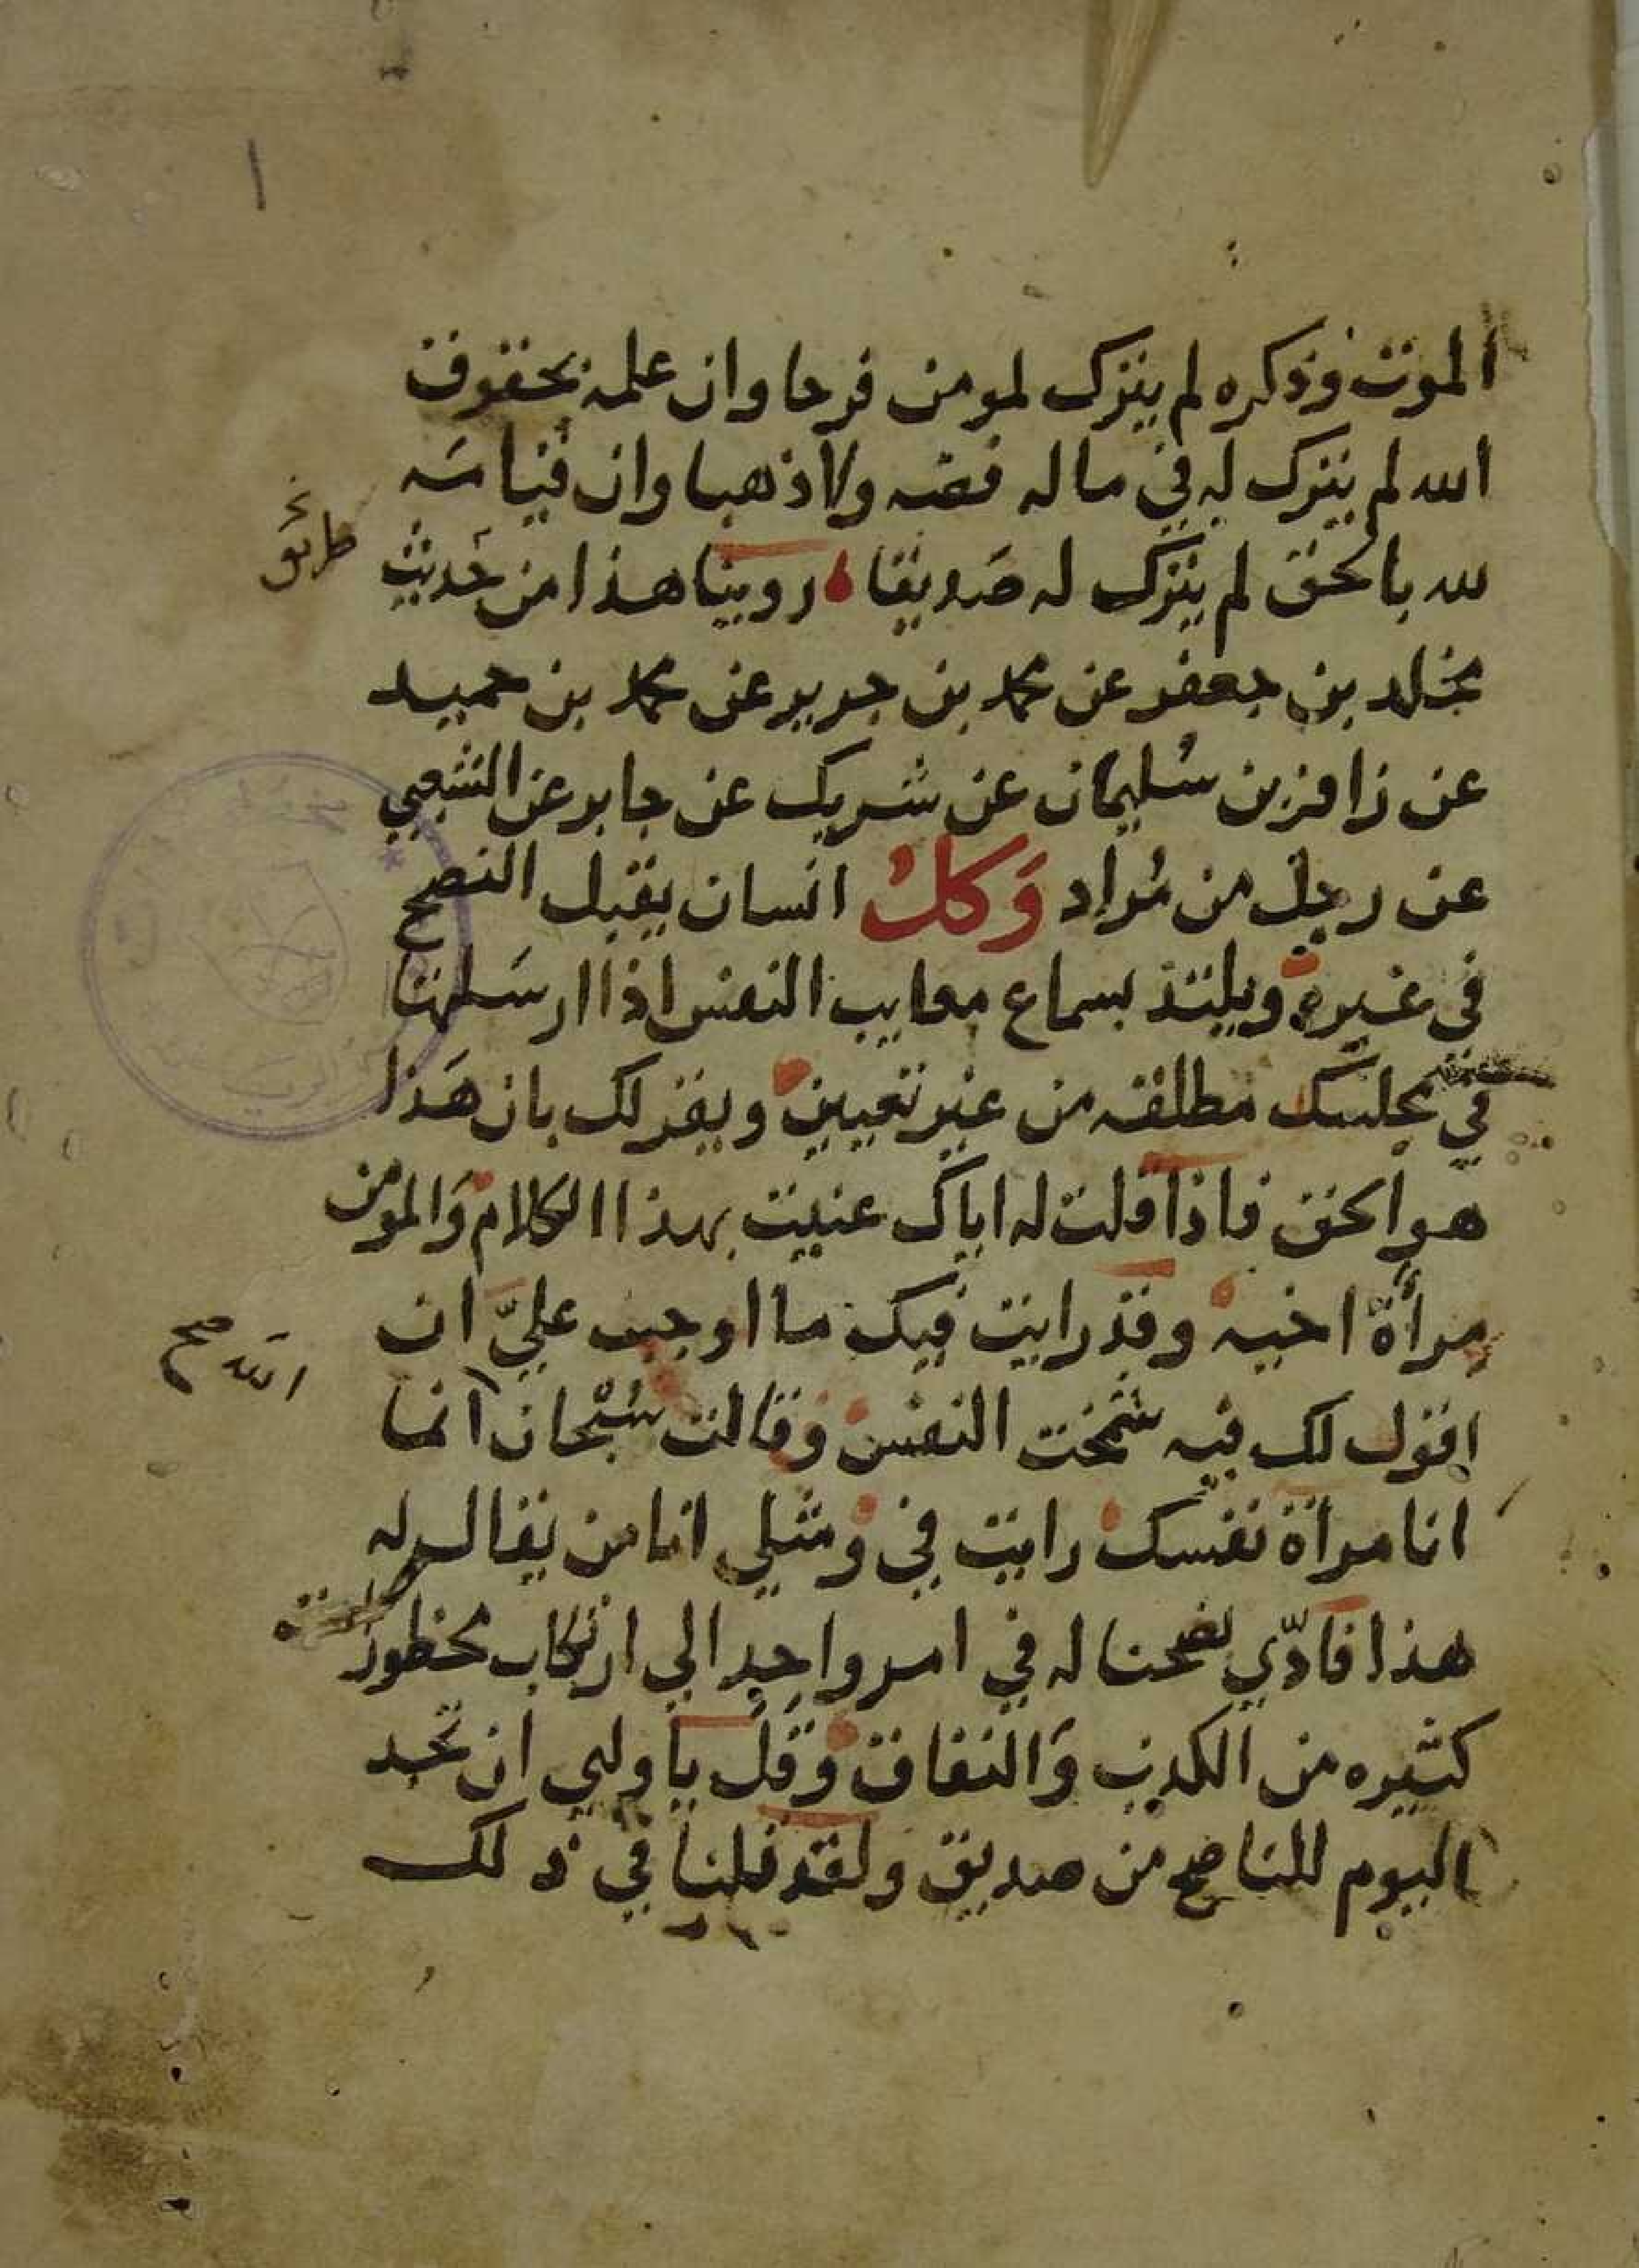 ١
الموت وذكره لم يترك لمومن فرحا وان علمه بحقوق
الله لم يترك له في ماله فضه ولا ذهبا وان قيامَه
لله بالحق لم يترك له صَديقا روينا هذا من حَديث
مخلد بن جعفر عن محمد بن جرير عن محمد بن حميد
عن زافر بن سُليمان عن شريك عن جابر عن الشعبي
عن رجل من مُراد وَكلُ انسان يقبل النصح
في غيره ويلتذ بسماع معايب النفس اذا ارسَلتها
في مجلسك مطلقه من غير تعيين ويقر لك بان هَذا
هو الحق فاذا قلت له اياك عنيت بهذا الكلام وَالمومن
مرأة اخيه وقد رايت فيك ما اوجب عليّ ان
اقول لك فيه شمخت النفس وقالت سُبْحان انما
الله صح
انا مرأة نفسك رايت في ومثلي انا من يقال له
هذا فادّي نصحنا له في امر واحد الي ارتكاب محظورات
كثيره من الكذب وَالنفاق وَقَل يا وليي ان تجد
اليوم للناصح من صديق ولقد قلنا في ذلك